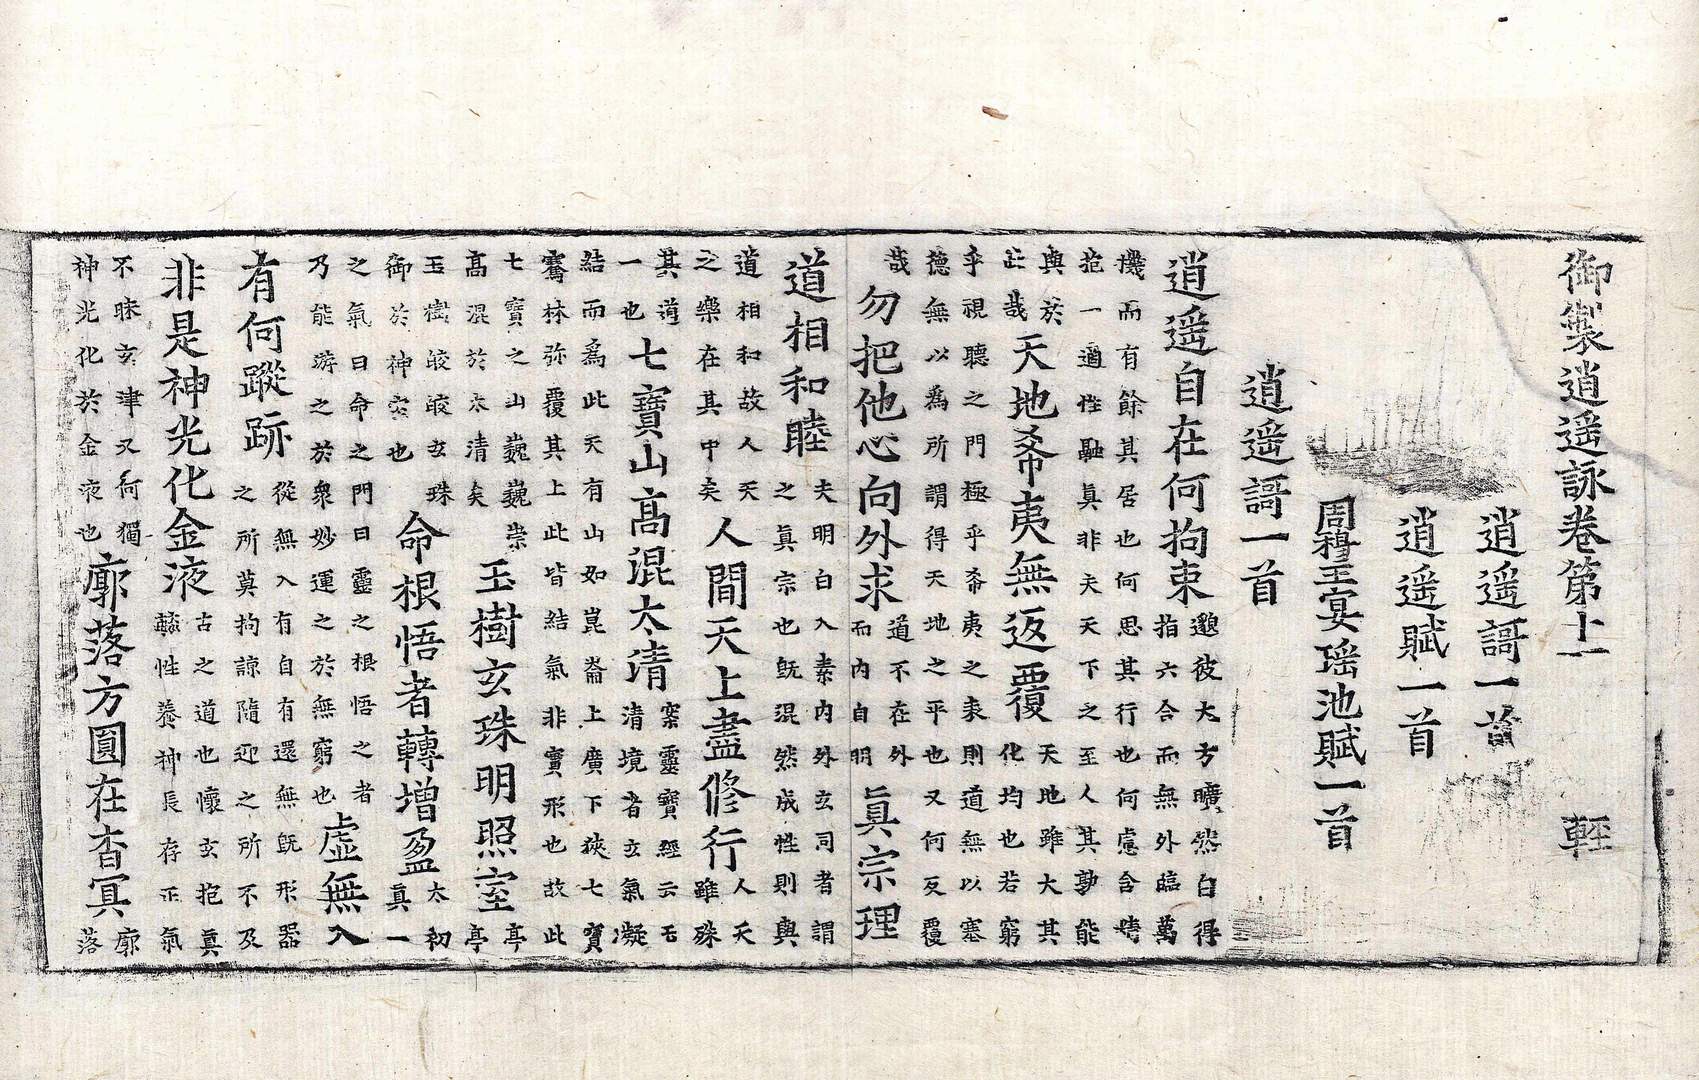 御製逍遥詠卷第十一 輕
逍遥謌一首
逍遥賦一首
周穆王宴瑶池賦一首
逍遥謌一首
逍遥自在何拘束
邈彼大方曠然自得
指六合而無外臨萬
機而有餘其居也何思其行也何慮含情
抱一適性融真非夫天下之至人其孰能
與於
此哉
天地希夷無返覆
天地雖大其
化均也若窮
乎視聽之門極乎希夷之表則道無以塞
德無以爲所謂得天地之平也又何反覆
哉
勿把他心向外求
道不在外
而内自明
真宗理
道相和睦
夫明白入素内外玄司者謂
之真宗也旣混然成性則與
道相和故人天
之樂在其中矣
人間天上盡修行
人天
雖殊
其道
一也
七寶山高混太清
案靈寶經云玉
清境者玄氣凝
結而爲此天有山如崑崙上廣下狹七寶
騫林弥覆其上此皆結氣非實形也故此
七寶之山巍巍崇
高混於太清矣
玉樹玄珠明照室
亭
亭
玉樹皎皎玄珠
御於神室也
命根悟者轉增盈
太初
真一
之氣曰命之門曰靈之根悟之者
乃能游之於衆妙運之於無窮也
虛無入
有何蹤跡
從無入有自有還無旣形器
之所莫拘諒隨迎之所不及
非是神光化金液
古之道也懷玄抱真
性養神長存正氣
不昧玄津又何獨
神光化於金液也
廓落方圓在杳冥
廓
落